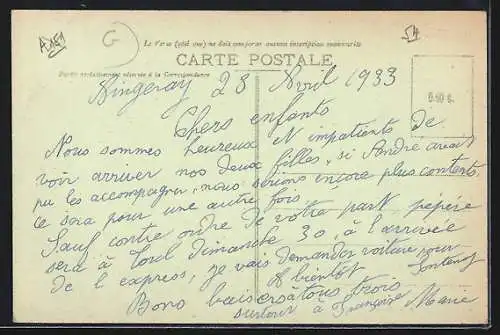 A161
G
54
Le Verso (côté vue) ne doit comporter aucune inscription manuscrite
CARTE POSTALE
Partie exclusivement réservée à la Correspondance
0.50 s.
Singeray 28 Avril 1933
Chers enfants
Nous sommes heureux et impatients de
voir arriver nos deux filles, si André avait
pu les accompagner, nous serions encore plus contents.
ce sera pour une autre fois
Sauf contre ordre de votre part pépère
sera à Toul dimanche 30, à l'arrivée
de l'express, je vais demander voiture pour
A bientôt Fontenoy
Bons baisers à tous trois
surtout à Françoise Marie